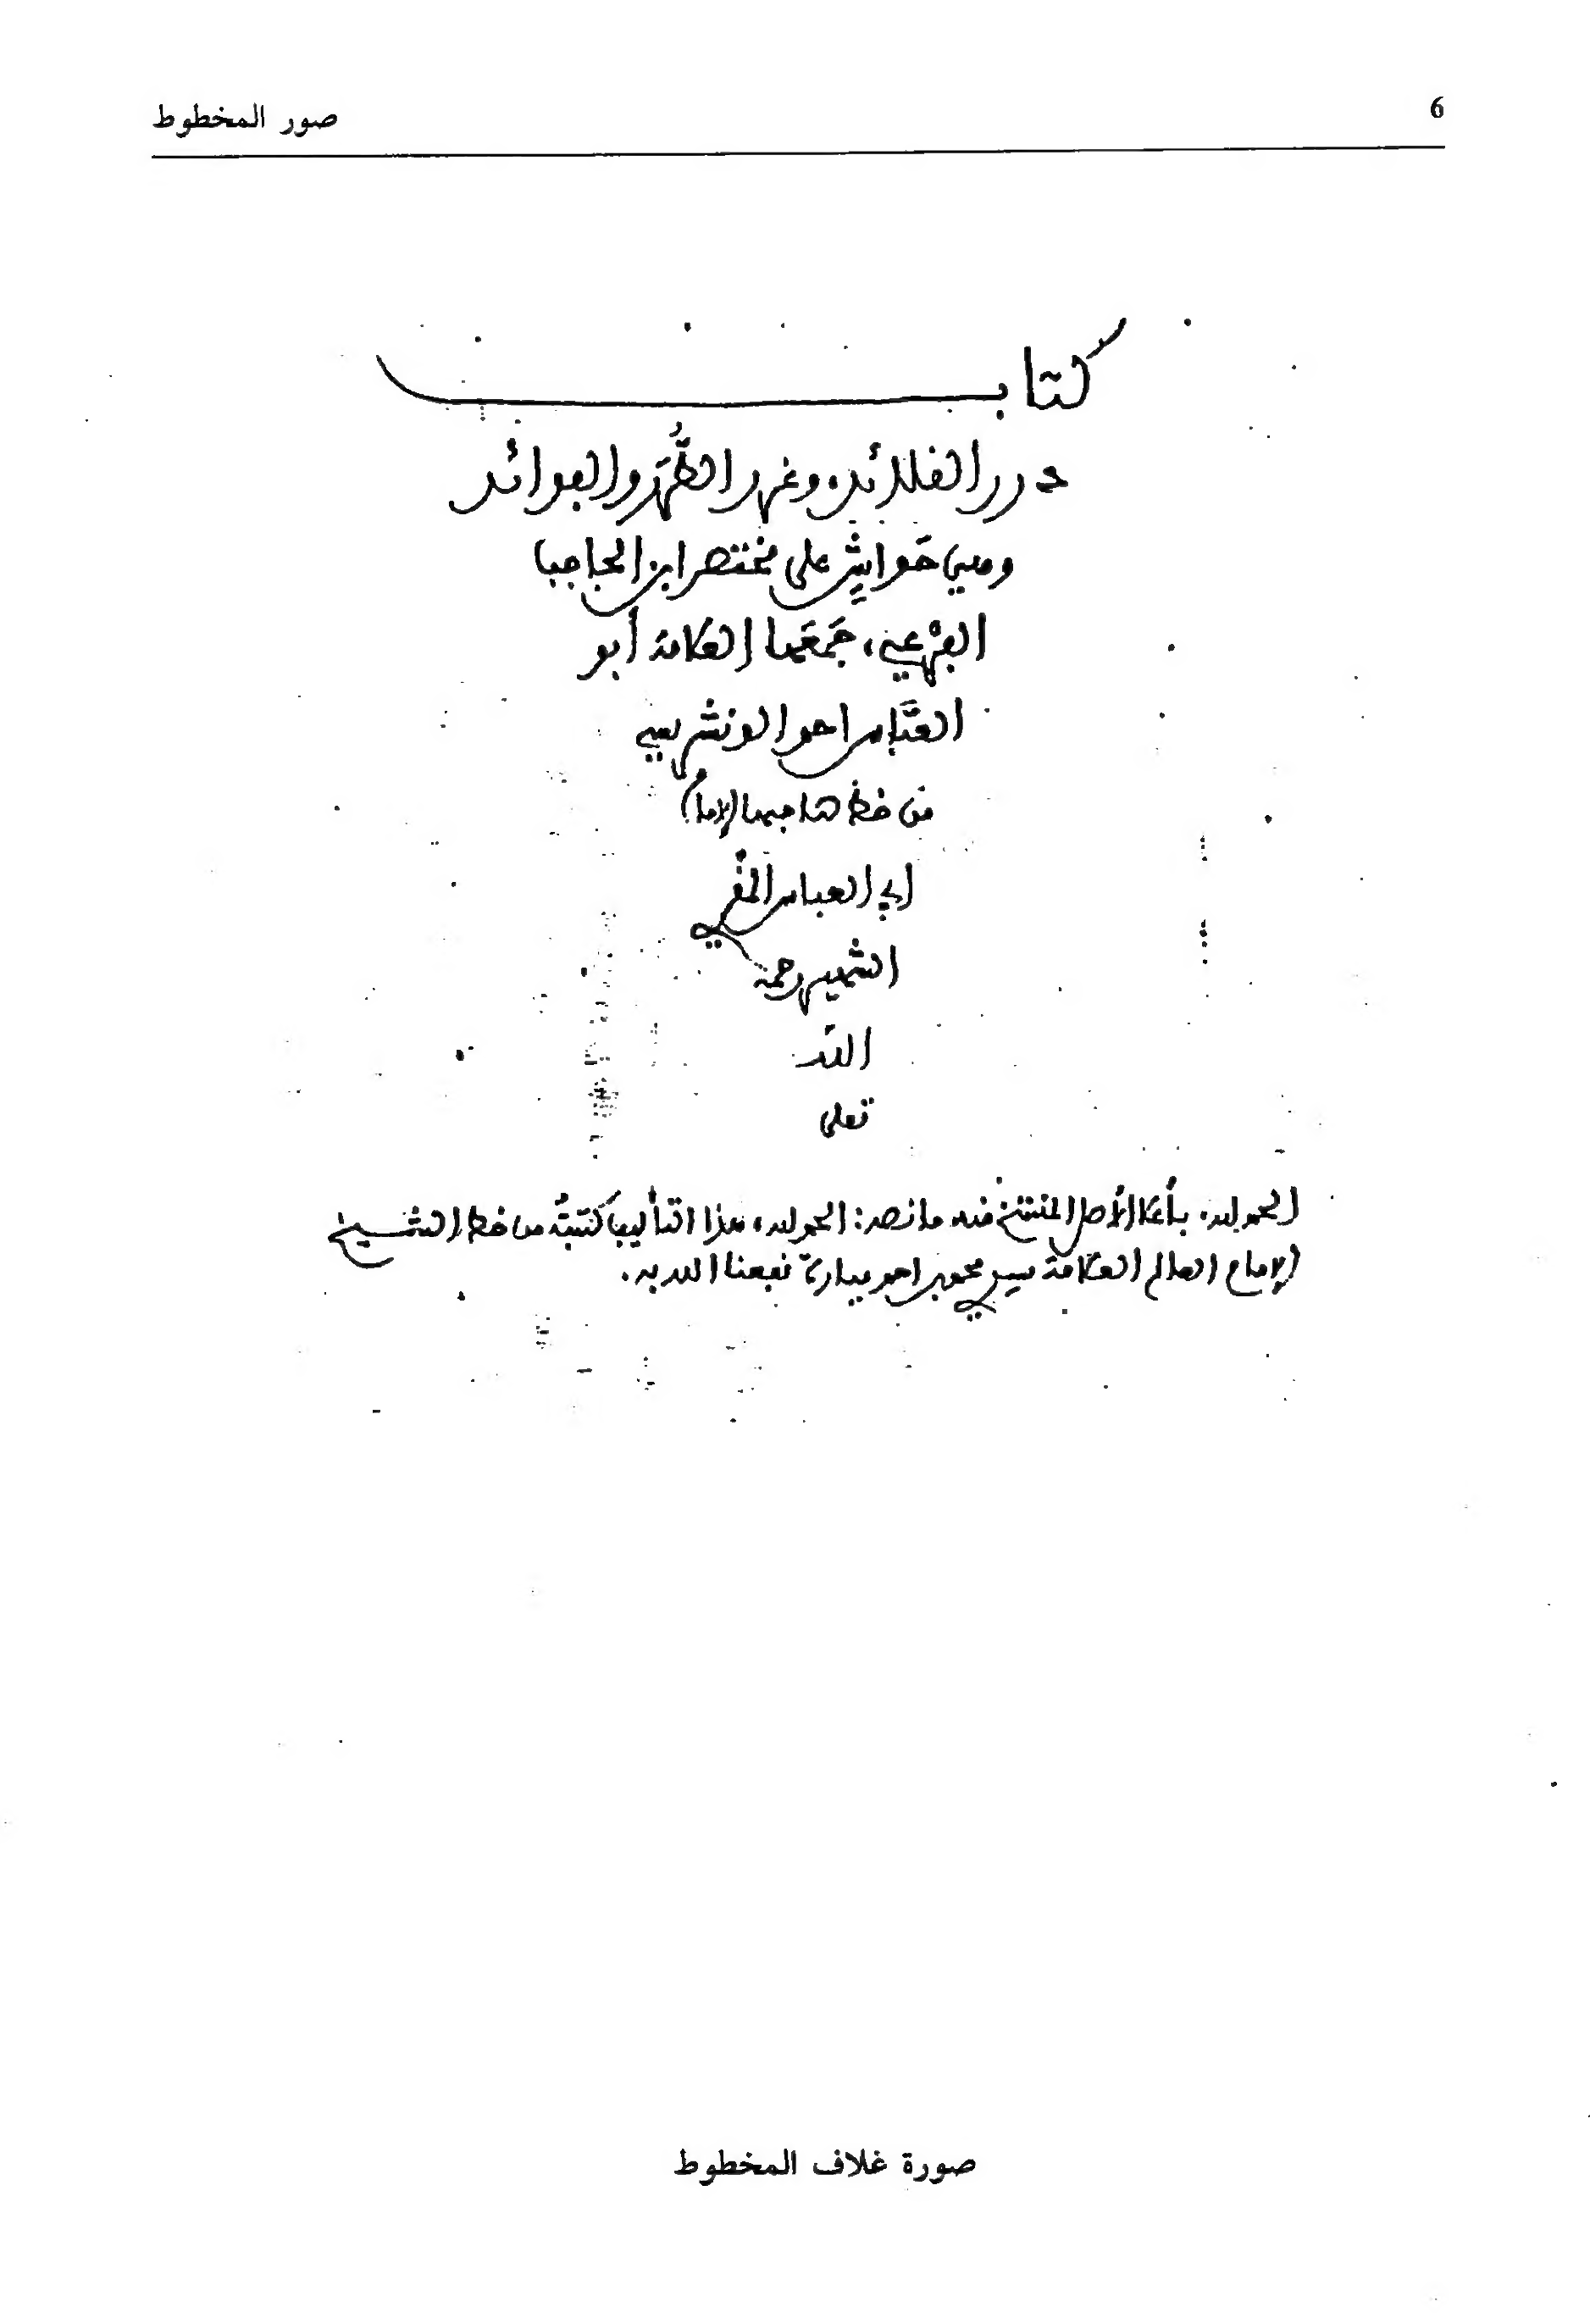 6
صور المخطوط
كتاب
درر القلائد، وغرر الطُّرَر والفوائد
وهي حَواشٍ على مختصر ابن الحاجب
الفرْعي، جَمَعَها العلامة أبو
العبَّاس احمد الونشريسي
من خط صاحبها الإمام
أبي العباس المقري
الشهير رحمه
الله
تعلى
الحمد لله، بأعلا الأصل المنتسخ منه ما نصه: الحمد لله، هذا التأليف كتبتُه من خط الشيخ
الإمام العالم العلامة سيدي محمد بن احمد ميارة نفعنا الله به.
صورة غلاف المخطوط